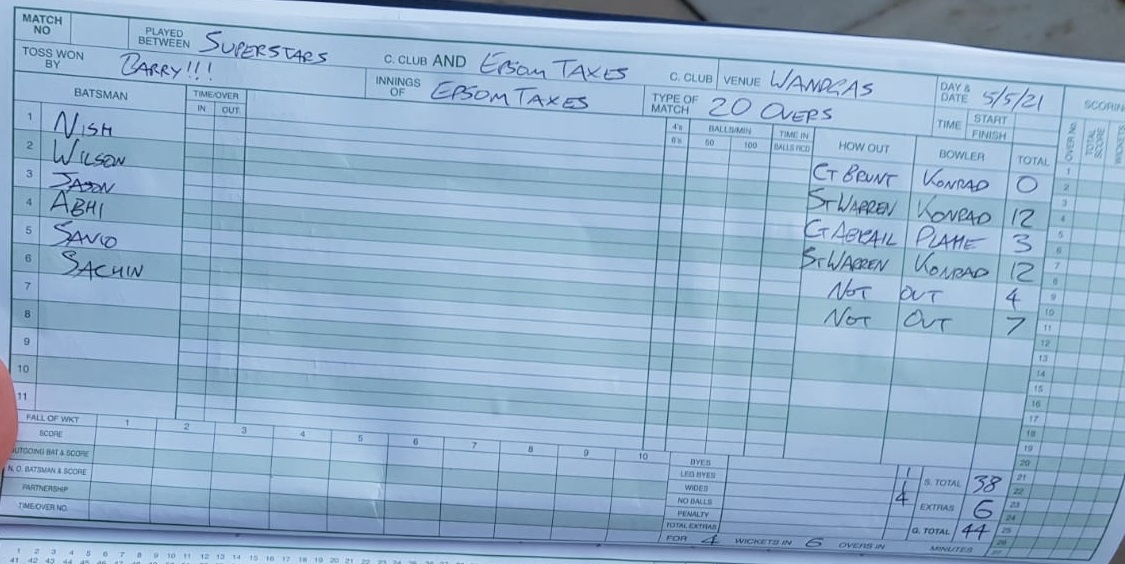 MATCH NO PLAYED BETWEEN SUPERSTARS C. CLUB AND EPSOM TAXES C. CLUB VENUE WANDGAS DAY & DATE 5/5/21 SCORIN
TOSS WON BY BARRY!!! INNINGS OF EPSOM TAXES TYPE OF MATCH 20 OVERS TIME START FINISH
BATSMAN TIME/OVER IN OUT 4's 6's BALLS/MIN 50 100 TIME IN BALLS RCD HOW OUT BOWLER TOTAL OVER NO. TOTAL SCORE WICKETS
1 NISH CT BRUNT KONRAD 0
2 WILSON ST WARREN KONRAD 12
3 JASON CT ABRAIL PLAHE 3
4 ABHI ST WARREN KONRAD 12
5 SAVIO NOT OUT 4
6 SACHIN NOT OUT 7
7
8
9
10
11
1
2
3
4
5
6
7
8
9
10
11
12
13
14
15
16
17
18
19
20
21
22
23
24
25
26
27
FALL OF WKT 1 2 3 4 5 6 7 8 9 10
SCORE
OUTGOING BAT & SCORE
N. O. BATSMAN & SCORE
PARTNERSHIP
TIME/OVER NO.
BYES 1
LEG BYES 1
WIDES 4
NO BALLS
PENALTY
TOTAL EXTRAS
S. TOTAL 38
EXTRAS 6
G. TOTAL 44
FOR 4 WICKETS IN 6 OVERS IN MINUTES
1 2 3 4 5 6 7 8 9 10 11 12 13 14 15 16 17 18 19 20 21 22 23 24 25 26 27 28 29 30 31 32 33 34 35 36 37 38 39 40
41 42 43 44 45 46 47 48 49 50 51 52 53 54 55 56